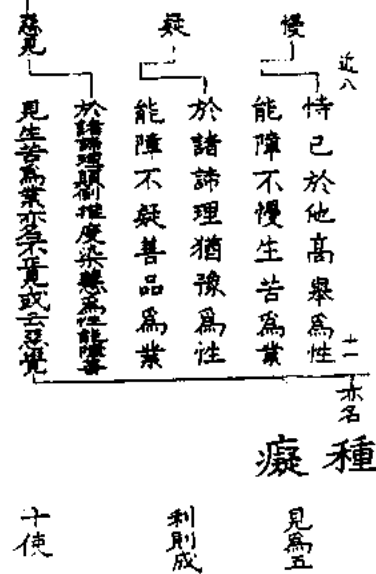 近八
十一
慢
恃己於他高舉為性
能障不慢生苦為業
疑
於諸諦理猶豫為性
能障不疑善品為業
惡見
於諸諦理顛倒推度染慧為性能障善
見生苦為業亦名不正見或云惡覺
亦名
種
癡
見為五
利則成
十使